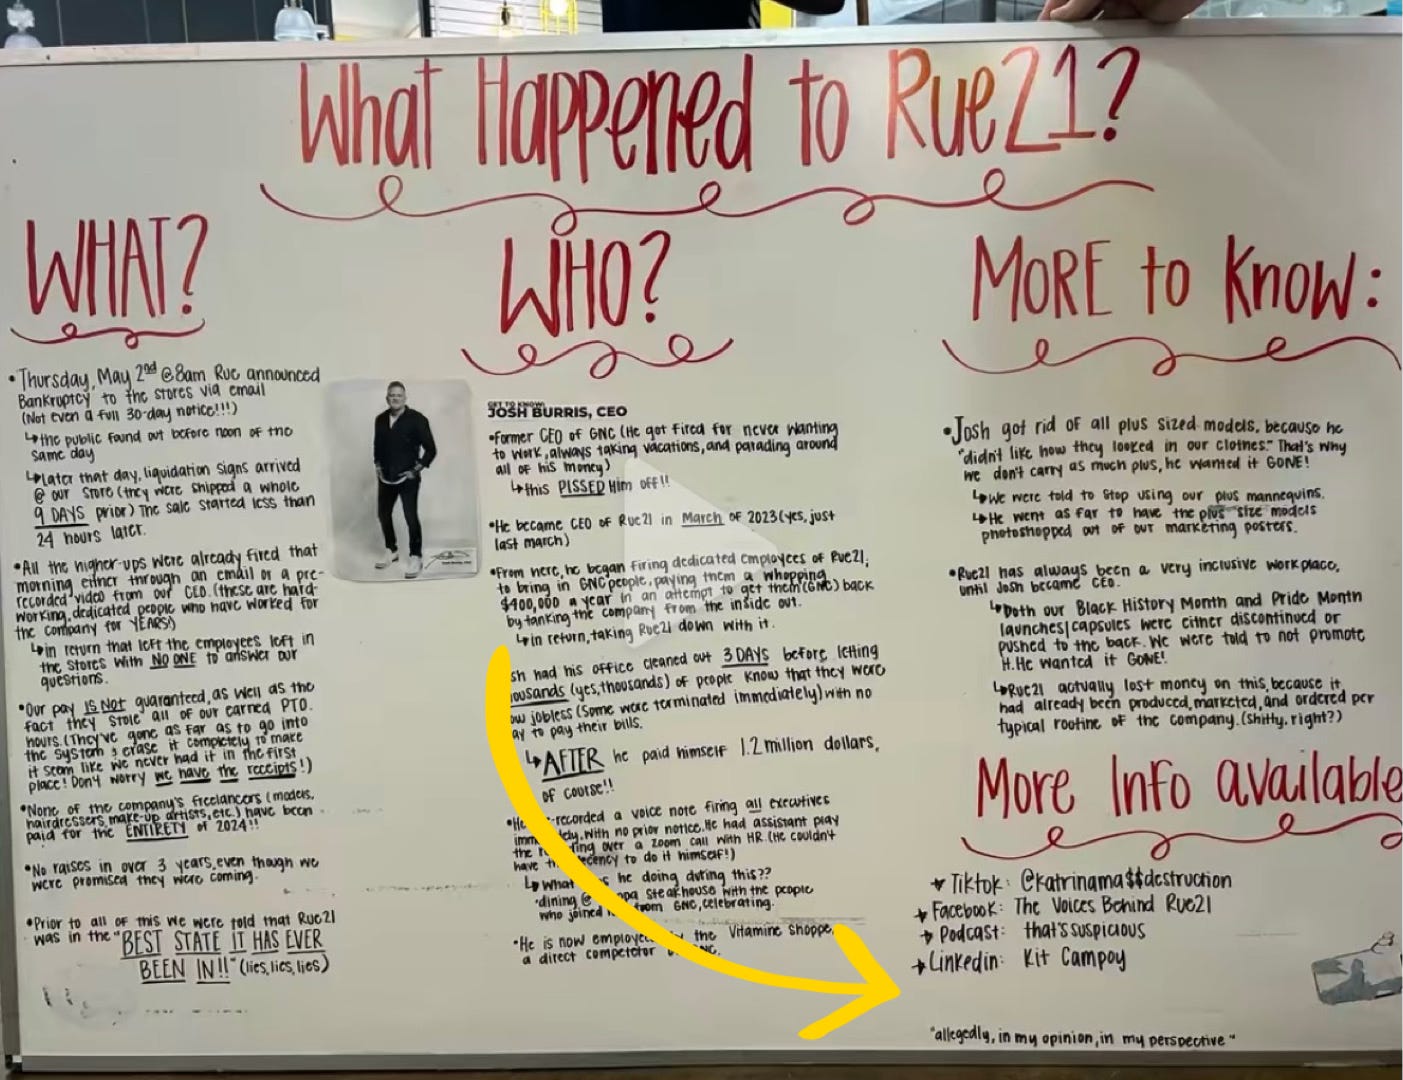 What Happened to Rue21?
WHAT?
•Thursday, May 2nd @8am Rue announced
Bankruptcy to the stores via email
(Not even a full 30-day notice!!!)
↳the public found out before noon of the
same day
↳Later that day, liquidation signs arrived
@ our store (they were shipped a whole
9 DAYS prior) The sale started less than
24 hours later.
•All the higher-ups were already fired that
morning either through an email or a pre-
recorded video from our CEO. (these are hard-
working, dedicated people who have worked for
the company for YEARS!)
↳in return that left the employees left in
the stores with NO ONE to answer our
questions.
•Our pay IS NOT guaranteed, as well as the
fact they stole all of our earned PTO.
(They've gone as far as to go into
the system & erase it completely to make
it seem like we never had it in the first
place! Don't worry we have the receipts!)
•None of the company's freelancers (models,
hairdressers, make-up artists, etc.) have been
paid for the ENTIRETY of 2024!!
•No raises in over 3 years, even though we
were promised they were coming.
•Prior to all of this we were told that Rue21
was in the "BEST STATE IT HAS EVER
BEEN IN!!" (lies, lies, lies)
WHO?
GET TO KNOW:
JOSH BURRIS, CEO
•Former CEO of GNC (He got fired for never wanting
to work, always taking vacations, and parading around
all of his money)
↳this PISSED Him off!!
•He became CEO of Rue21 in March of 2023 (yes, just
last march)
•From here, he began firing dedicated employees of Rue21,
to bring in GNC people, paying them a whopping
$400,000 a year in an attempt to get them (GNC) back
by tanking the company from the inside out.
↳in return, taking Rue21 down with it.
sh had his office cleaned out 3 DAYS before letting
ousands (yes, thousands) of people know that they were
ow jobless (Some were terminated immediately) with no
ay to pay their bills.
↳AFTER he paid himself 1.2 million dollars,
of course!!
•He -recorded a voice note firing all executives
imm ly, with no prior notice. He had assistant play
the r ing over a zoom call with HR. (He couldn't
have th ecency to do it himself!)
↳What s he doing during this??
•dining @ pa steakhouse with the people
who joined from GNC, celebrating.
•He is now employe the Vitamine Shoppe,
a direct competetor
MORE to Know:
•Josh got rid of all plus sized models, because he
"didn't like how they looked in our clothes." That's why
we don't carry as much plus, he wanted it GONE!
↳We were told to stop using our plus mannequins.
↳He went as far to have the plus size models
photoshopped out of our marketing posters.
•Rue21 has always been a very inclusive workplace,
until Josh became CEO.
↳both our Black History Month and Pride Month
launches/capsules were either discontinued or
pushed to the back. We were told to not promote
it. He wanted it GONE!
↳Rue21 actually lost money on this, because it
had already been produced, marketed, and ordered per
typical routine of the company. (Shitty, right?)
More Info available
Tiktok: @katrinama$$destruction
Facebook: The Voices Behind Rue21
Podcast: that's suspicious
Linkedin: Kit Campoy
"allegedly, in my opinion, in my perspective"